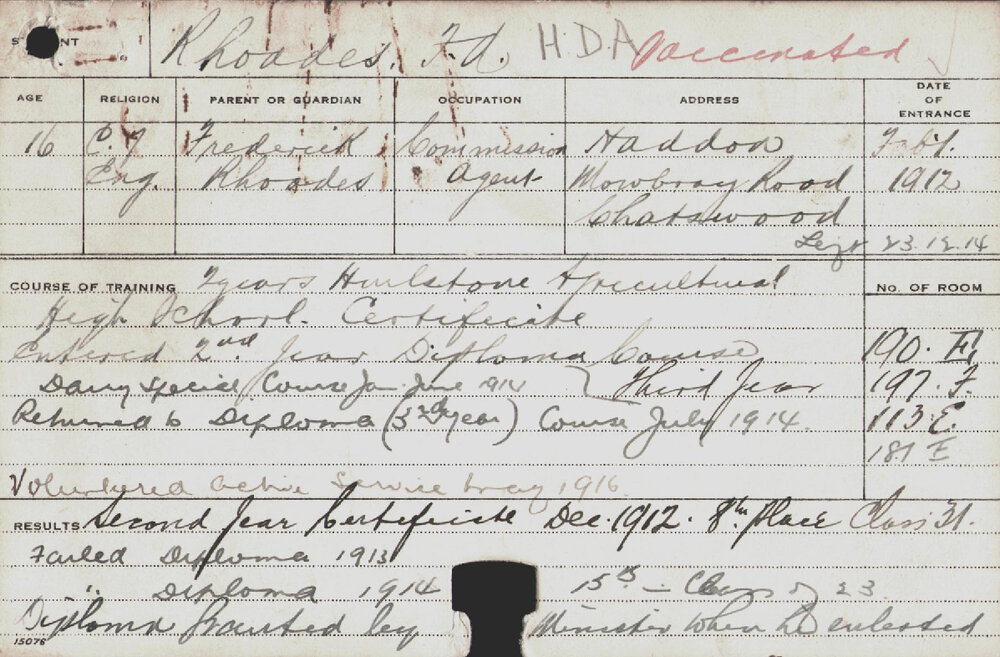 STUDENT Rhoades. F.A. H.D.A Vaccinated
AGE RELIGION PARENT OR GUARDIAN OCCUPATION ADDRESS DATE OF ENTRANCE
16 C. of Frederick Commission Haddon Feby.
Eng. Rhoades Agent Mowbray Road 1912
Chatswood
Left 23.12.14
COURSE OF TRAINING 2 years Hurlstone Agricultural No. OF ROOM
High School. Certificate
Entered 2nd Year Diploma Course 190. E.
Dairy Special Course Jan-June 1914 } Third Year 197. F.
Returned to Diploma (3rd year) Course July 1914. 113 E.
187 E
Volunteered active service May 1916
RESULTS Second Year Certificate Dec. 1912. 8th Place Class 31.
Failed Diploma 1913
" Diploma 1914 15th - Class of 23
Diploma Granted by Minister when he enlisted
15076